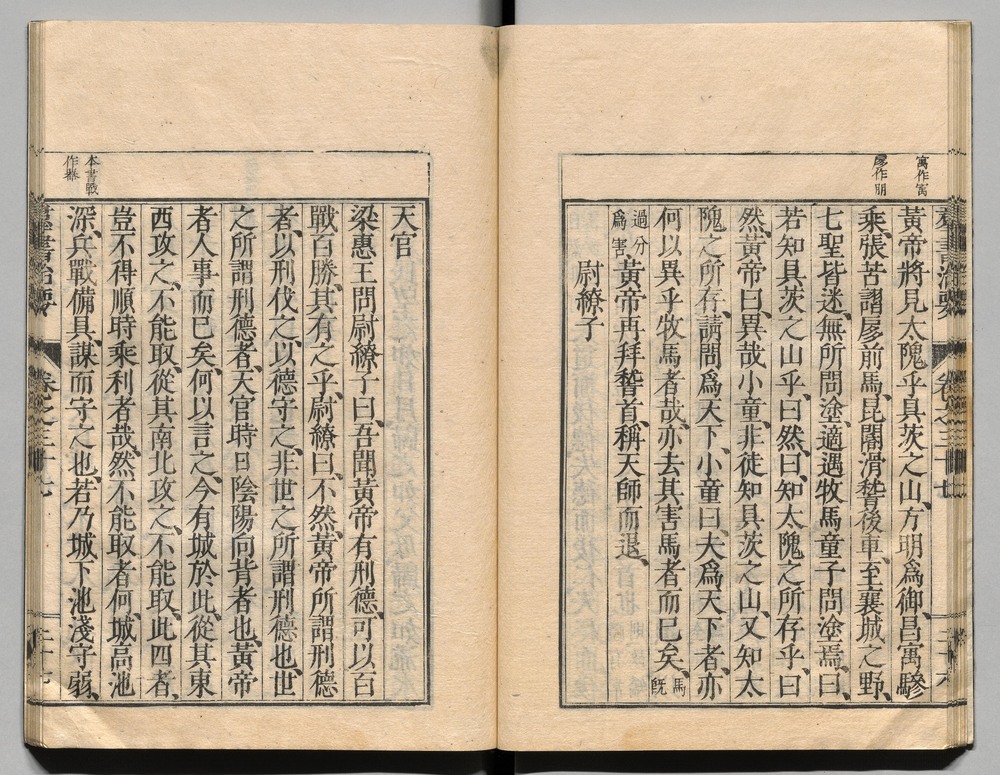 寓作㝢
㝛作朋
羣書治要
卷之三十七
二十六
黃帝將見太隗乎具茨之山、方明爲御、昌寓驂
乘、張苦謵㝛前馬、昆閽滑稽後車、至襄城之野、
七聖皆迷、無所問塗、適遇牧馬童子問塗焉、曰、
若知具茨之山乎、曰然、曰、知太隗之所存乎、曰
然、黃帝曰、異哉小童、非徒知具茨之山、又知太
隗之所存、請問爲天下、小童曰、夫爲天下者、亦
何以異乎牧馬者哉、亦去其害馬者而巳矣、馬既
過分爲害、黃帝再拜稽首、稱天師而退、
尉繚子
本書戰
作器
天官
梁惠王問尉繚子曰、吾聞黃帝有刑德、可以百
戰百勝、其有之乎、尉繚曰、不然、黃帝所謂刑德
者、以刑伐之、以德守之、非世之所謂刑德也、世
之所謂刑德者、天官時日陰陽向背者也、黃帝
者人事而巳矣、何以言之、今有城於此、從其東
西攻之、不能取、從其南北攻之、不能取、此四者、
豈不得順時乘利者哉、然不能取者何、城高池
深、兵戰備具、謀而守之也、若乃城下池淺守弱、
羣書治要
卷之三十七